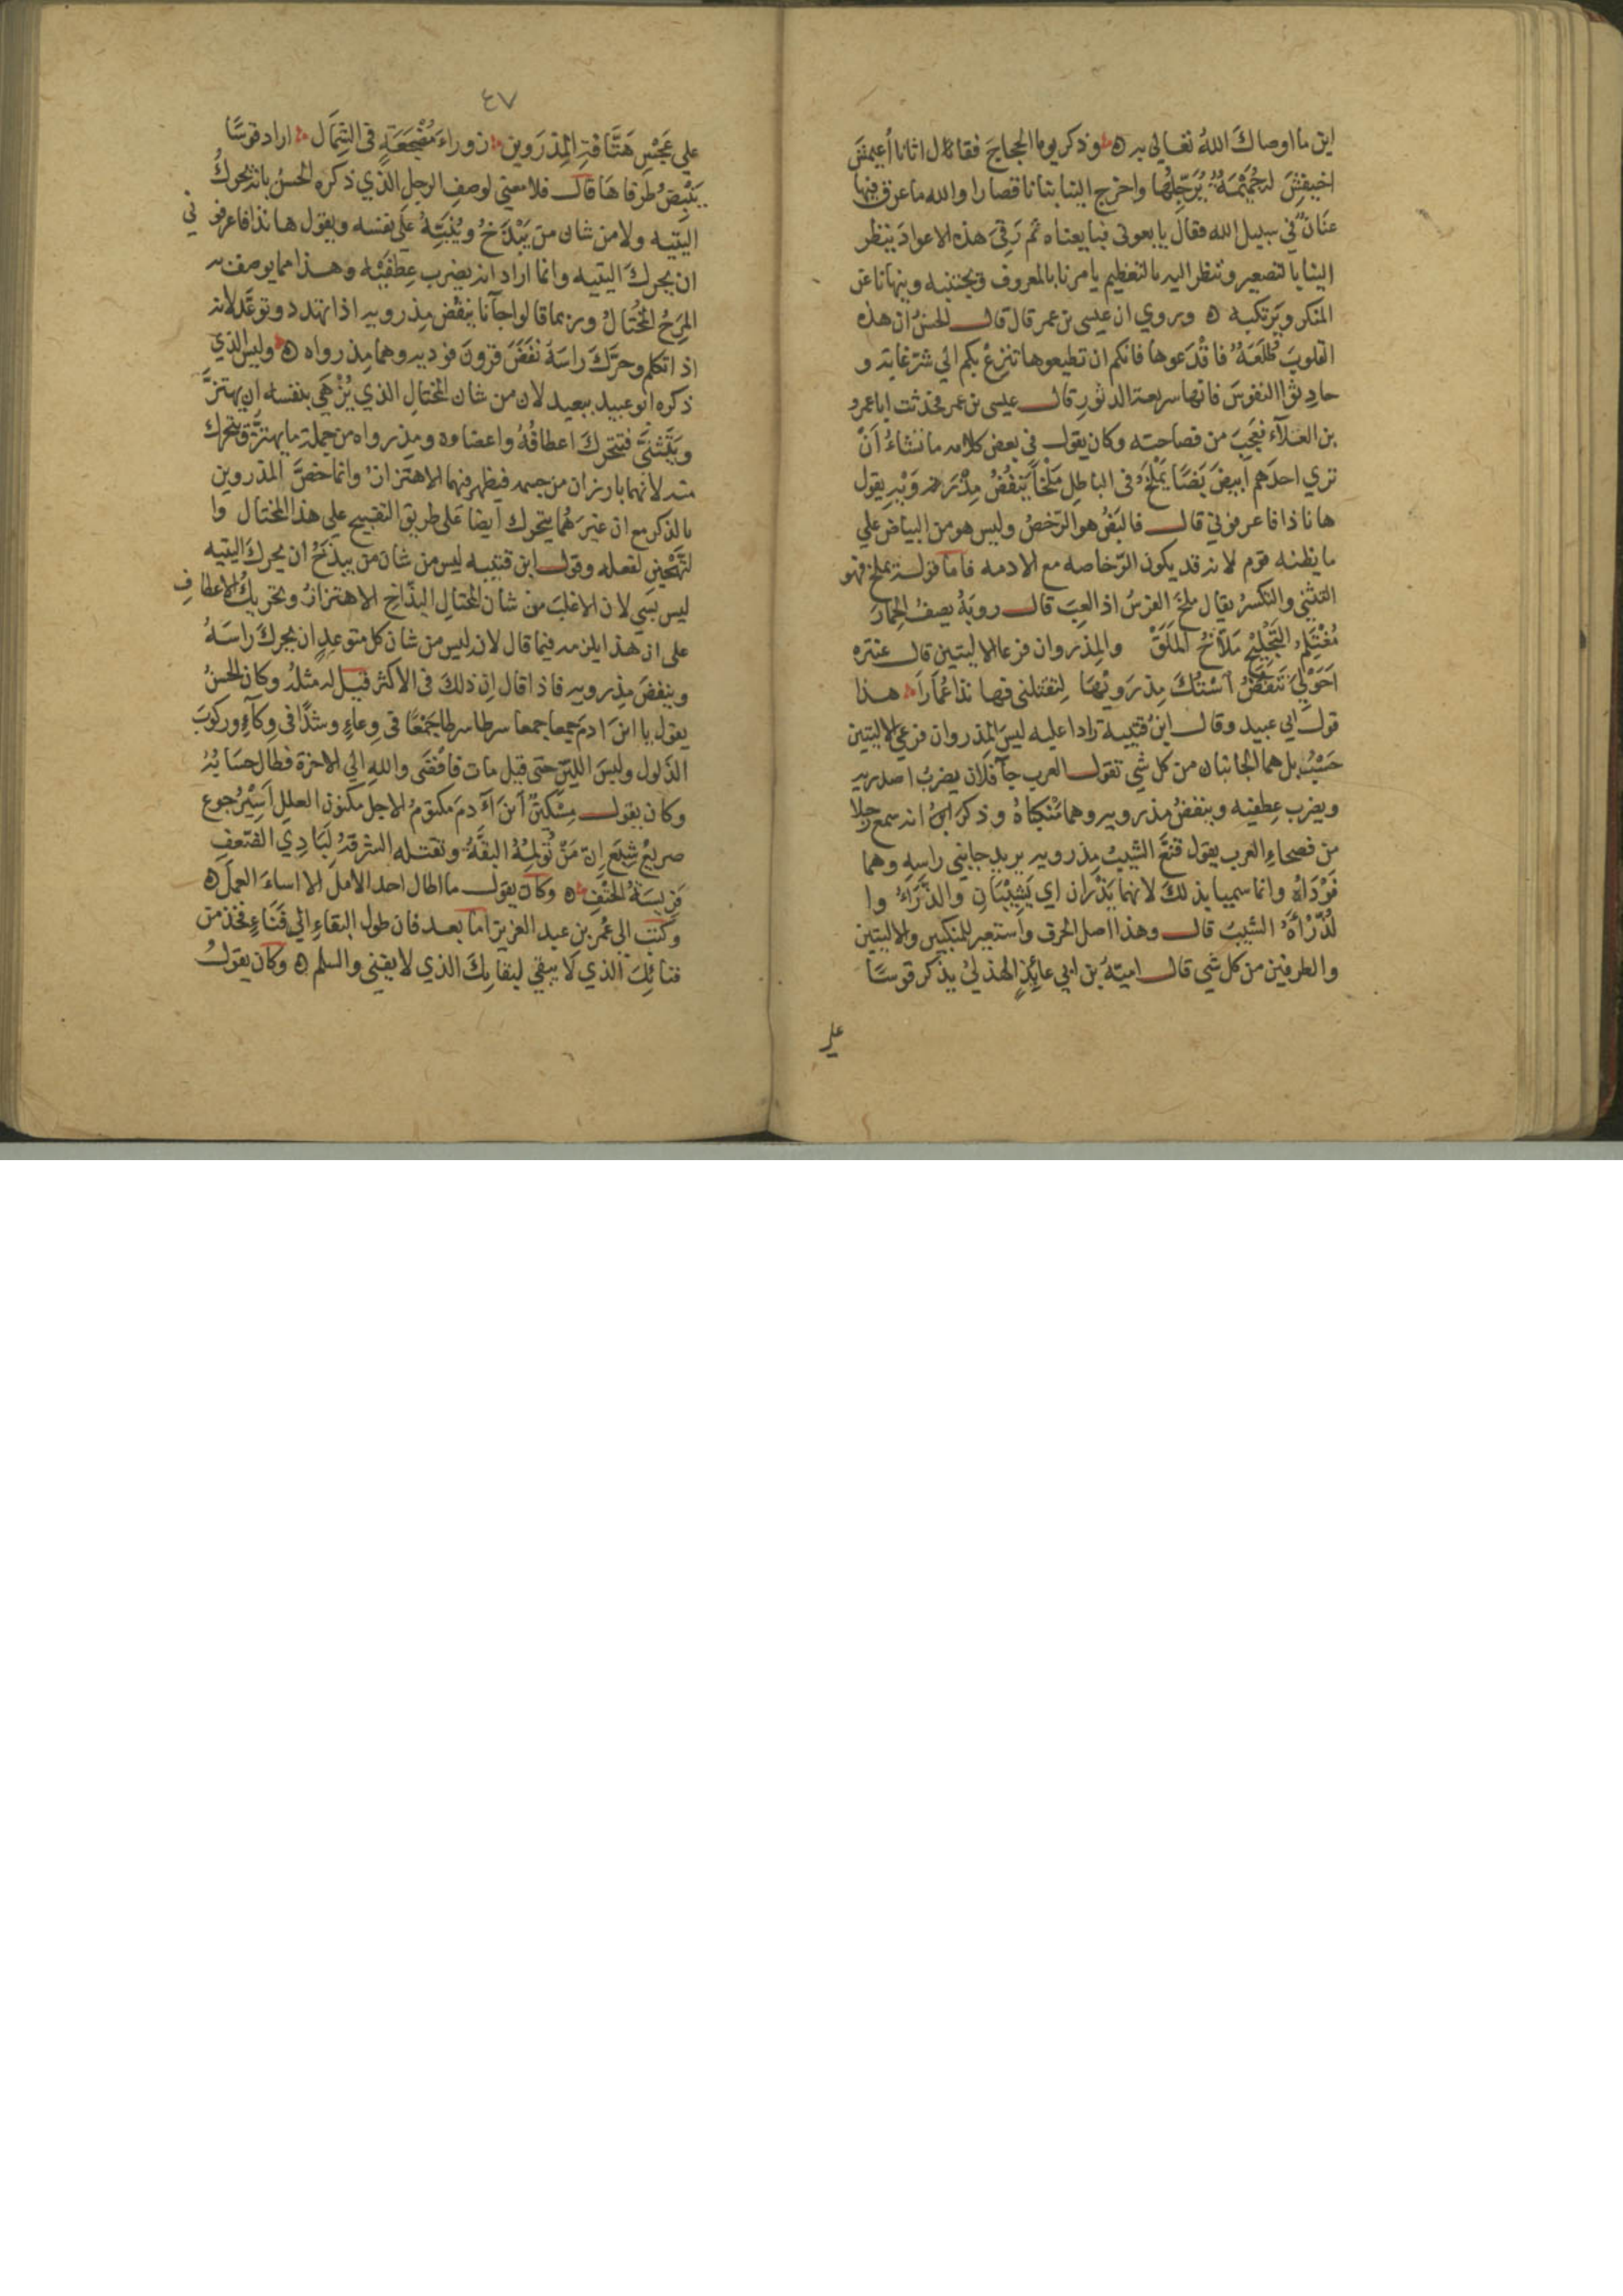 اين ما اوصاك الله تعالى به ه وذكر يوما الحجاج فقال اتانا أعيمش
اخيفش له جُمَيْمَة يُرَجِّلُها واخرج الينا بنانا قصارا والله ما عرق فيها
عنان في سبيل الله فقال بايعوني فبايعناه ثم رَقِيَ هذه الاعواد ينظر
الينا بالتصغير وننظر اليه بالتعظيم يامرنا بالمعروف ويجتنبه وينهانا عن
المنكر ويرتكبه ه وروي ان عيسى بن عمر قال قال الحسن ان هذه
القلوب طُلَعَة فاقْدَعوها فانكم ان تطيعوها تنزع بكم الي شر غاية و
حادثوا النفوس فانها سريعة الدثور قال عيسى بن عمر فحدثت ابا عمرو
بن العلآء فعجب من فصاحته وكان يقول في بعض كلامه ما نشاءُ أنْ
تري احدهم ابيض بَضًّا يَمْلَخُ في الباطل مَلْخًا يَنْفُضُ مِذْرَوَيْهِ يقول
ها نا ذا فاعرفوني قال فالبَضُّ هو الرَّخْصُ وليس هو من البياض علي
ما يظنه قوم لانه قد يكون الرّخاصه مع الادمه فاما قوله يملخ فهو
التثني والتكسرُ يقال مَلَخَ الفرسُ اذا لعِبَ قال روبةُ يصف الحمارَ
مُعْتَزِمُ التَّجْلِيحِ مَلاَّخُ المَلَقْ والمِذروان فرعا الاليتين قال عنتره
اَحَوْلِيَ تَنْفُضُ اَسْتُكَ مِذْرَوَيْهَا لِتَقْتلني فها نذا عُمَارَا هذا
قول ابي عبيد وقال ابن قتيبة رادا عليه ليس المِذروان فرعي الاليتين
حَسْبُ بل هما الجانبان من كل شي تقول العرب جآ فلان يضربُ اصدريه
ويضرب عِطفيه وينفضُ مذرويه وهما مَنْكِباهُ وذكر انه سمع رجلا
من فصحاءِ العرب يقول قَنَّعَ الشيبُ مِذرويه يريد جانبي راسه وهما
فَوْدَاهُ وانما سميا بذلك لانهما يَذْرَانِ اي يَشِيْبَانِ والذَّرَءُ وا
لذُّرْأَةُ الشيبُ قال وهذا اصل الحرف واستعير للمنكبين والاليتين
والطرفين من كل شي قال اميّةُ بن ابي عائِذٍ الهذليُ يذكر قوسًا
علي
٤٧
علي عَجْسِ هَتَّافةِ المِذرَوين ن وراءَ مُضْجَعَةٍ في الشِمَال اراد قوسًا
يَنْبِضُ طرفاها قال فلا معني لوصف الرجل الذي ذكره الحسنُ بانه يحركُ
اليتيه ولا من شان من يَبْذَخُ ويُنَبِّهُ علي نفسه ويقول ها نذا فاعرفو ني
ان يحرك اليتيه وانما اراد انه يضرب عِطفَيْه وهذا مما يوصف به
المَرِحُ المختالُ وربما قالوا جآنا ينفُض مِذرويه اذا تهدد وتوعّد لانه
اذا تكلم وحرَّك راسَهُ نَفَضَ قرونَ فوديه وهما مِذرواه ه وليس الذي
ذكره ابو عبيد ببعيد لان من شان المختال الذي يُزْهَى بنفسه ان يهتزّ
ويَتَثَنَّى فتتحرك اعطافُهُ واعضاوه ومِذرواه من جملة ما يهتزّ ويتحرك
منه لانهما بارزان من جسمه فيظهر فيهما الاهتزازُ وانما خصّ المذروين
بالذكر مع ان غيرَهُما يتحرك ايضا على طريق التقبيح علي هذا المختال وا
لتَّهْجين لفعله وقول ابن قتيبه ليس من شان من يبذخُ ان يحرك اليتيه
ليس بشي لان الاغلبَ من شان المختالِ البذّاخِ الاهتزازُ وتحريكُ الاعطافِ
على ان هذا يلزمه فيما قال لانه ليس من شان كل متوعدٍ ان يحرك راسَهُ
وينفضَ مِذرويه فاذا قال ان ذلك في الاكثر قيل له مثلُهُ وكان الحسنُ
يقول يا ابنَ ادمَ جمعا جمعا سرطا سرطا جَمْعًا في وِعاءٍ وشدًّا في وِكآءٍ وركوبَ
الذَلول ولبس اللين حتى قيل مات فافْضَى والله الي الاخرة فطال حسابُهُ
وكان يقول مِسْكينٌ ابنَ آدمَ مكتومُ الاجل مكنون العلل اسيرُ جوع
صريعُ شِبَعٍ إنّ مَنْ تُولِمُهُ البقَّةُ وتقتله الشرقةُ لَبَادِي الضّعف
فَرِيسَةُ الحتفِ ه وكان يقول ما اطال احد الاملَ الا اساءَ العملَ ه
وكتب الى عُمر بن عبد العزيز اما بعد فان طول البقاءِ الي فَنَاءٍ فخذ من
فنائِكَ الذي لا يبقي لبقائِكَ الذي لا يفني والسلم ه وكان يقولُ